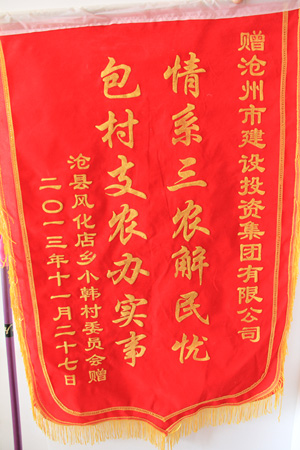 赠沧州市建设投资集团有限公司
情系三农解民忧
包村支农办实事
沧县风化店乡小韩村委员会赠
二〇一三年十一月二十七日